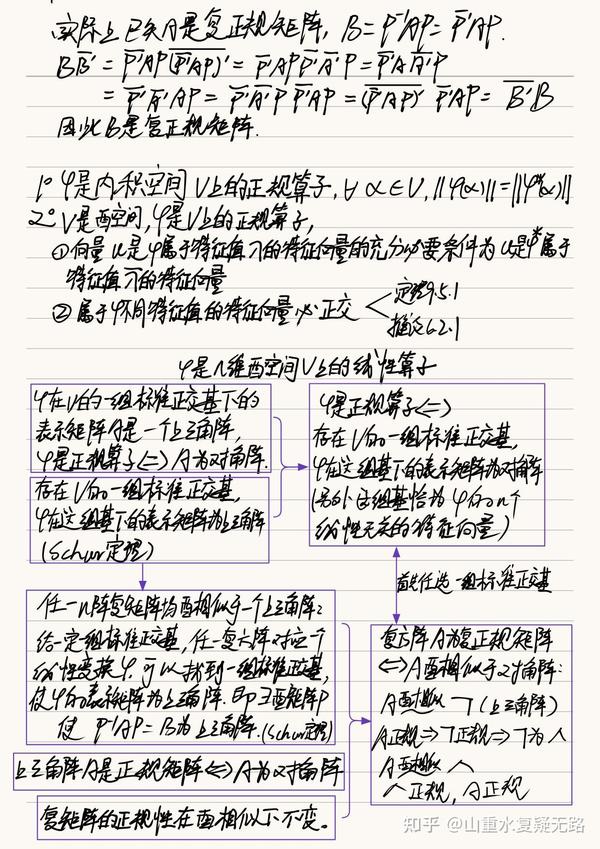 实际上已知A是复正规矩阵, B=P⁻¹AP=P̅'AP.
BB̅'=P̅'AP(P̅'AP)̅'=P̅'APP̅'A̅'P=P̅'AA̅'P
=P̅'A̅'AP=P̅'A̅'PP̅'AP=(P̅'AP)̅'P̅'AP=B̅'B
因此B是复正规矩阵.
1° φ是内积空间V上的正规算子, ∀α∈V, ||φ(α)||=||φ*(α)||
2° V是酉空间, φ是V上的正规算子,
①向量u是φ属于特征值λ的特征向量的充分必要条件为u是φ*属于
特征值λ̅的特征向量
②属于φ不同特征值的特征向量必正交
定理9.5.1
推论6.2.1
φ是n维酉空间V上的线性算子
φ在V的一组标准正交基下的
表示矩阵A是一个上三角阵,
φ是正规算子⟺A为对角阵.
存在V的一组标准正交基,
φ在这组基下的表示矩阵为上三角阵
(Schur定理)
φ是正规算子⟺
存在V的一组标准正交基,
φ在这组基下的表示矩阵为对角阵
(另外这组基恰为φ的n个
线性无关的特征向量)
首先任选一组标准正交基
任一n阶复矩阵均酉相似于一个上三角阵:
给一定组标准正交基, 任一复方阵对应一个
线性变换φ. 可以找到一组标准正交基,
使φ的表示矩阵为上三角阵. 即∃酉矩阵P
使 P⁻¹AP=B为上三角阵.(Schur定理)
复方阵A为复正规矩阵
⟺A酉相似于对角阵:
A酉相似 T(上三角阵)
A正规⇒T正规⇒T为Λ
A酉相似Λ
Λ正规, A正规
上三角阵A是正规矩阵⟺A为对角阵
复矩阵的正规性在酉相似下不变。
知乎 @山重水复疑无路